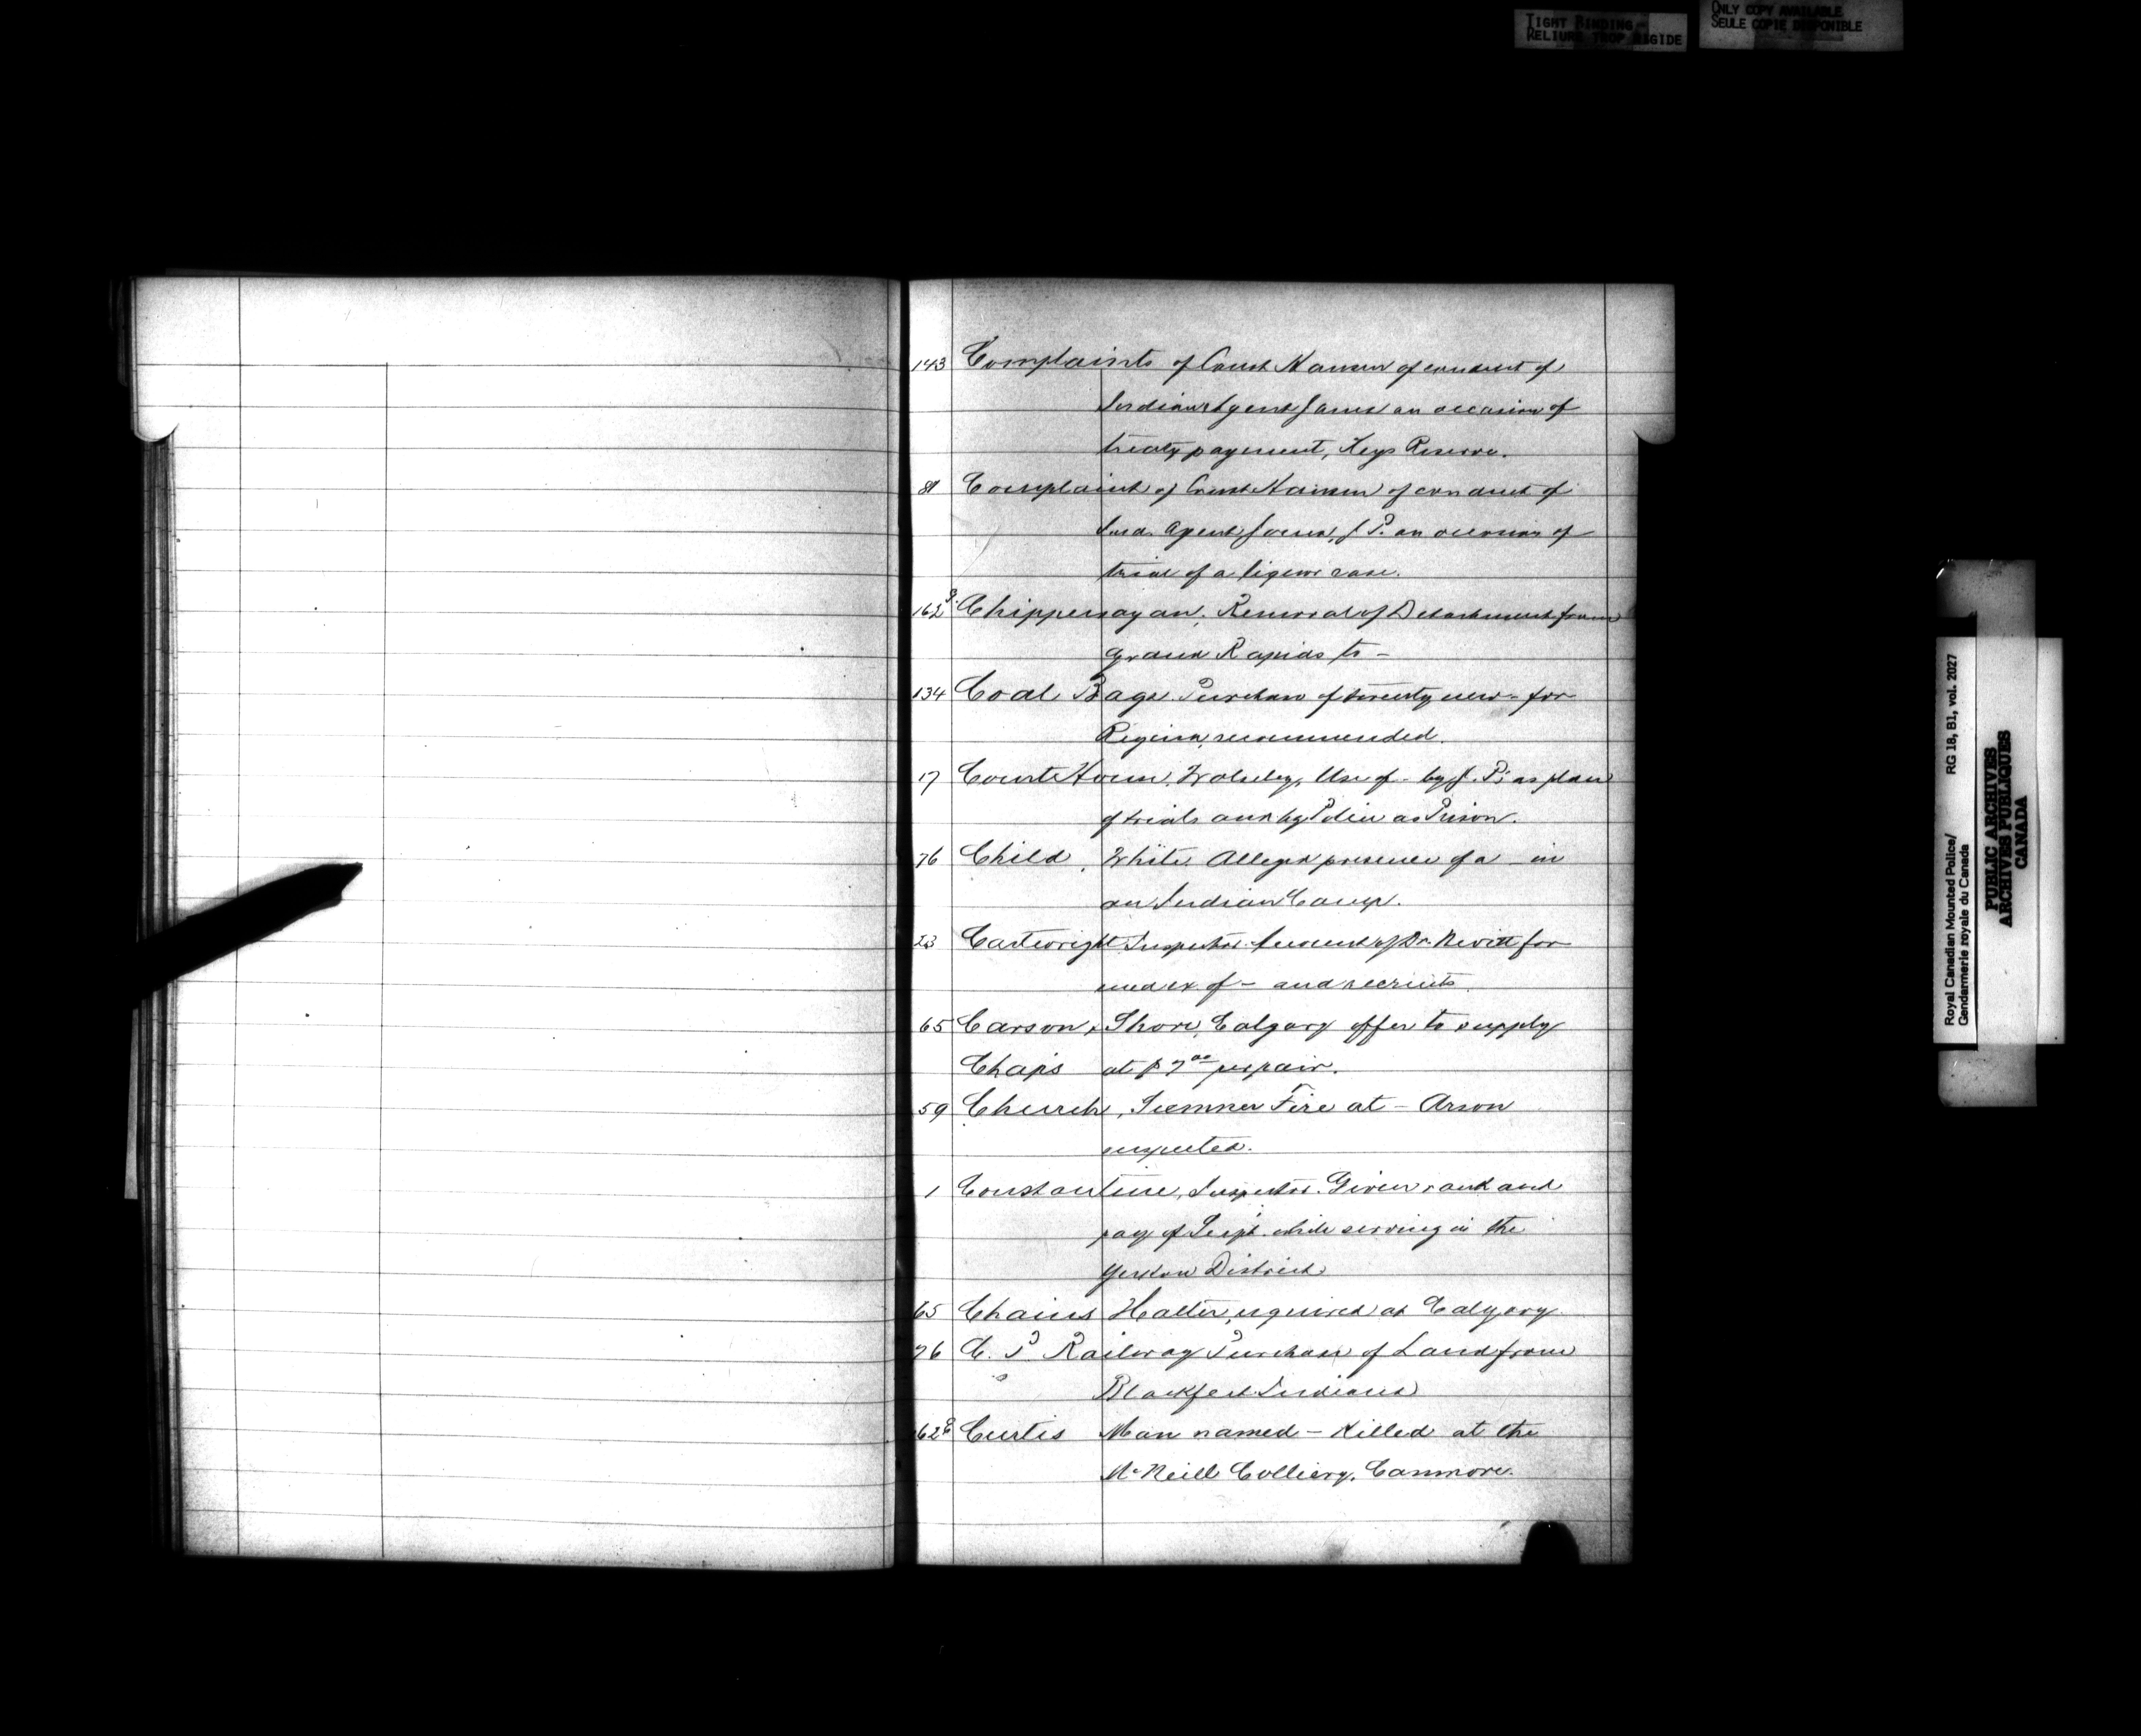 TIGHT BINDING
RELIURE TROP RIGIDE
ONLY COPY AVAILABLE
SEULE COPIE DISPONIBLE
143 Complaints of Const of conduct of
Indian Agent Jones on occasion of
treaty payment, Keys Reserve.
81 Complaint of Const of conduct of
Ind. Agent Jones, J.P. on occasion of
trial of a liquor case.
162 Chippewayan. Removal of Detachment from
Grand Rapids to -
134 Coal Bags. Purchase of twenty new - for
Regina, recommended.
17 Court House, Wolseley, Use of - by J.P. as place
of trials and by Police as Prison.
76 Child, White. Alleged presence of a - in
an Indian Camp.
23 Cartwright Inspector. Account of Dr. Nevitt for
med ex. of - and recruits.
65 Carson & Shore, Calgary offer to supply
Chaps at $7.00 per pair.
59 Church, Sumner Fire at - Arson
suspected.
1 Constantine, Inspector. Given rank and
pay of Supt. while serving in the
Yukon District
65 Chains Halter, required at Calgary.
76 C. P. Railway Purchase of Land from
Blackfeet Indians
62 Curtis Man named - Killed at the
McNeill Colliery, Canmore.
Royal Canadian Mounted Police/ RG 18, B1, vol. 2027
Gendarmerie royale du Canada
PUBLIC ARCHIVES
ARCHIVES PUBLIQUES
CANADA